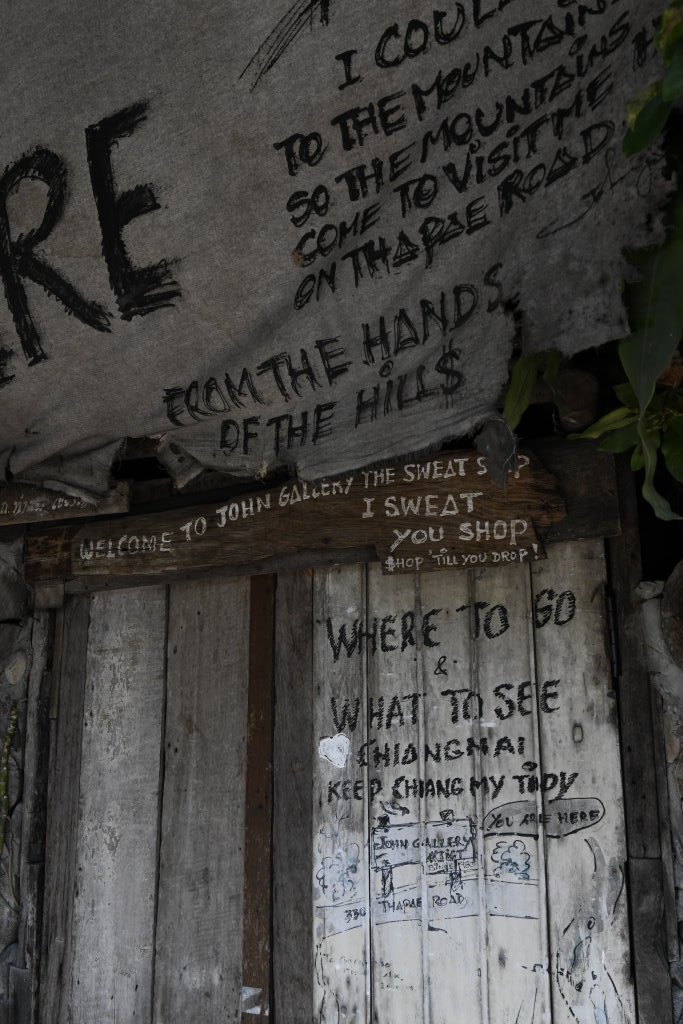 RE
I COUL
TO THE MOUNTAIN
SO THE MOUNTAINS
COME TO VISIT ME
ON THAPAE ROAD
FROM THE HANDS
OF THE HILL$
WELCOME TO JOHN GALLERY THE SWEAT
I SWEAT
YOU SHOP
$HOP 'TILL YOU DROP!
WHERE TO GO
&
WHAT TO SEE
CHIANGMAI
KEEP CHIANG MY TIDY
YOU ARE HERE
JOHN GALLERY
330 THAPAE ROAD